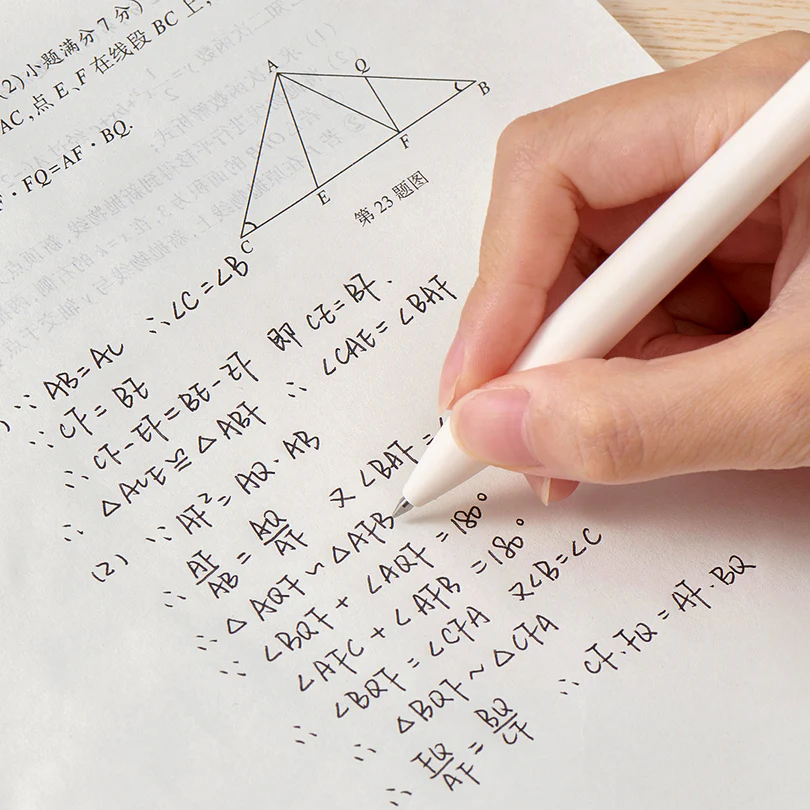 (2)小题满分7分)
AC,点E、F在线段BC上,
· FQ=AF · BQ.
A
Q
B
F
E
C
第23题图
∵ AB=AC ∴∠C=∠B
∴ CF=BE
∴ CF-EF=BE-EF 即 CE=BF.
∴ △ACE≌△ABF ∴ ∠CAE=∠BAF
(2) ∵ AF²=AQ·AB
∴ AF/AB=AQ/AF 又∠BAF=
∴ △AQF∽△AFB
∴ ∠BQF+∠AQF=180°
∠AFC+∠AFB=180°
∴ ∠BQF=∠CFA 又∠B=∠C
∴ △BQF∽△CFA
∴ FQ/AF=BQ/CF ∴ CF·FQ=AF·BQ